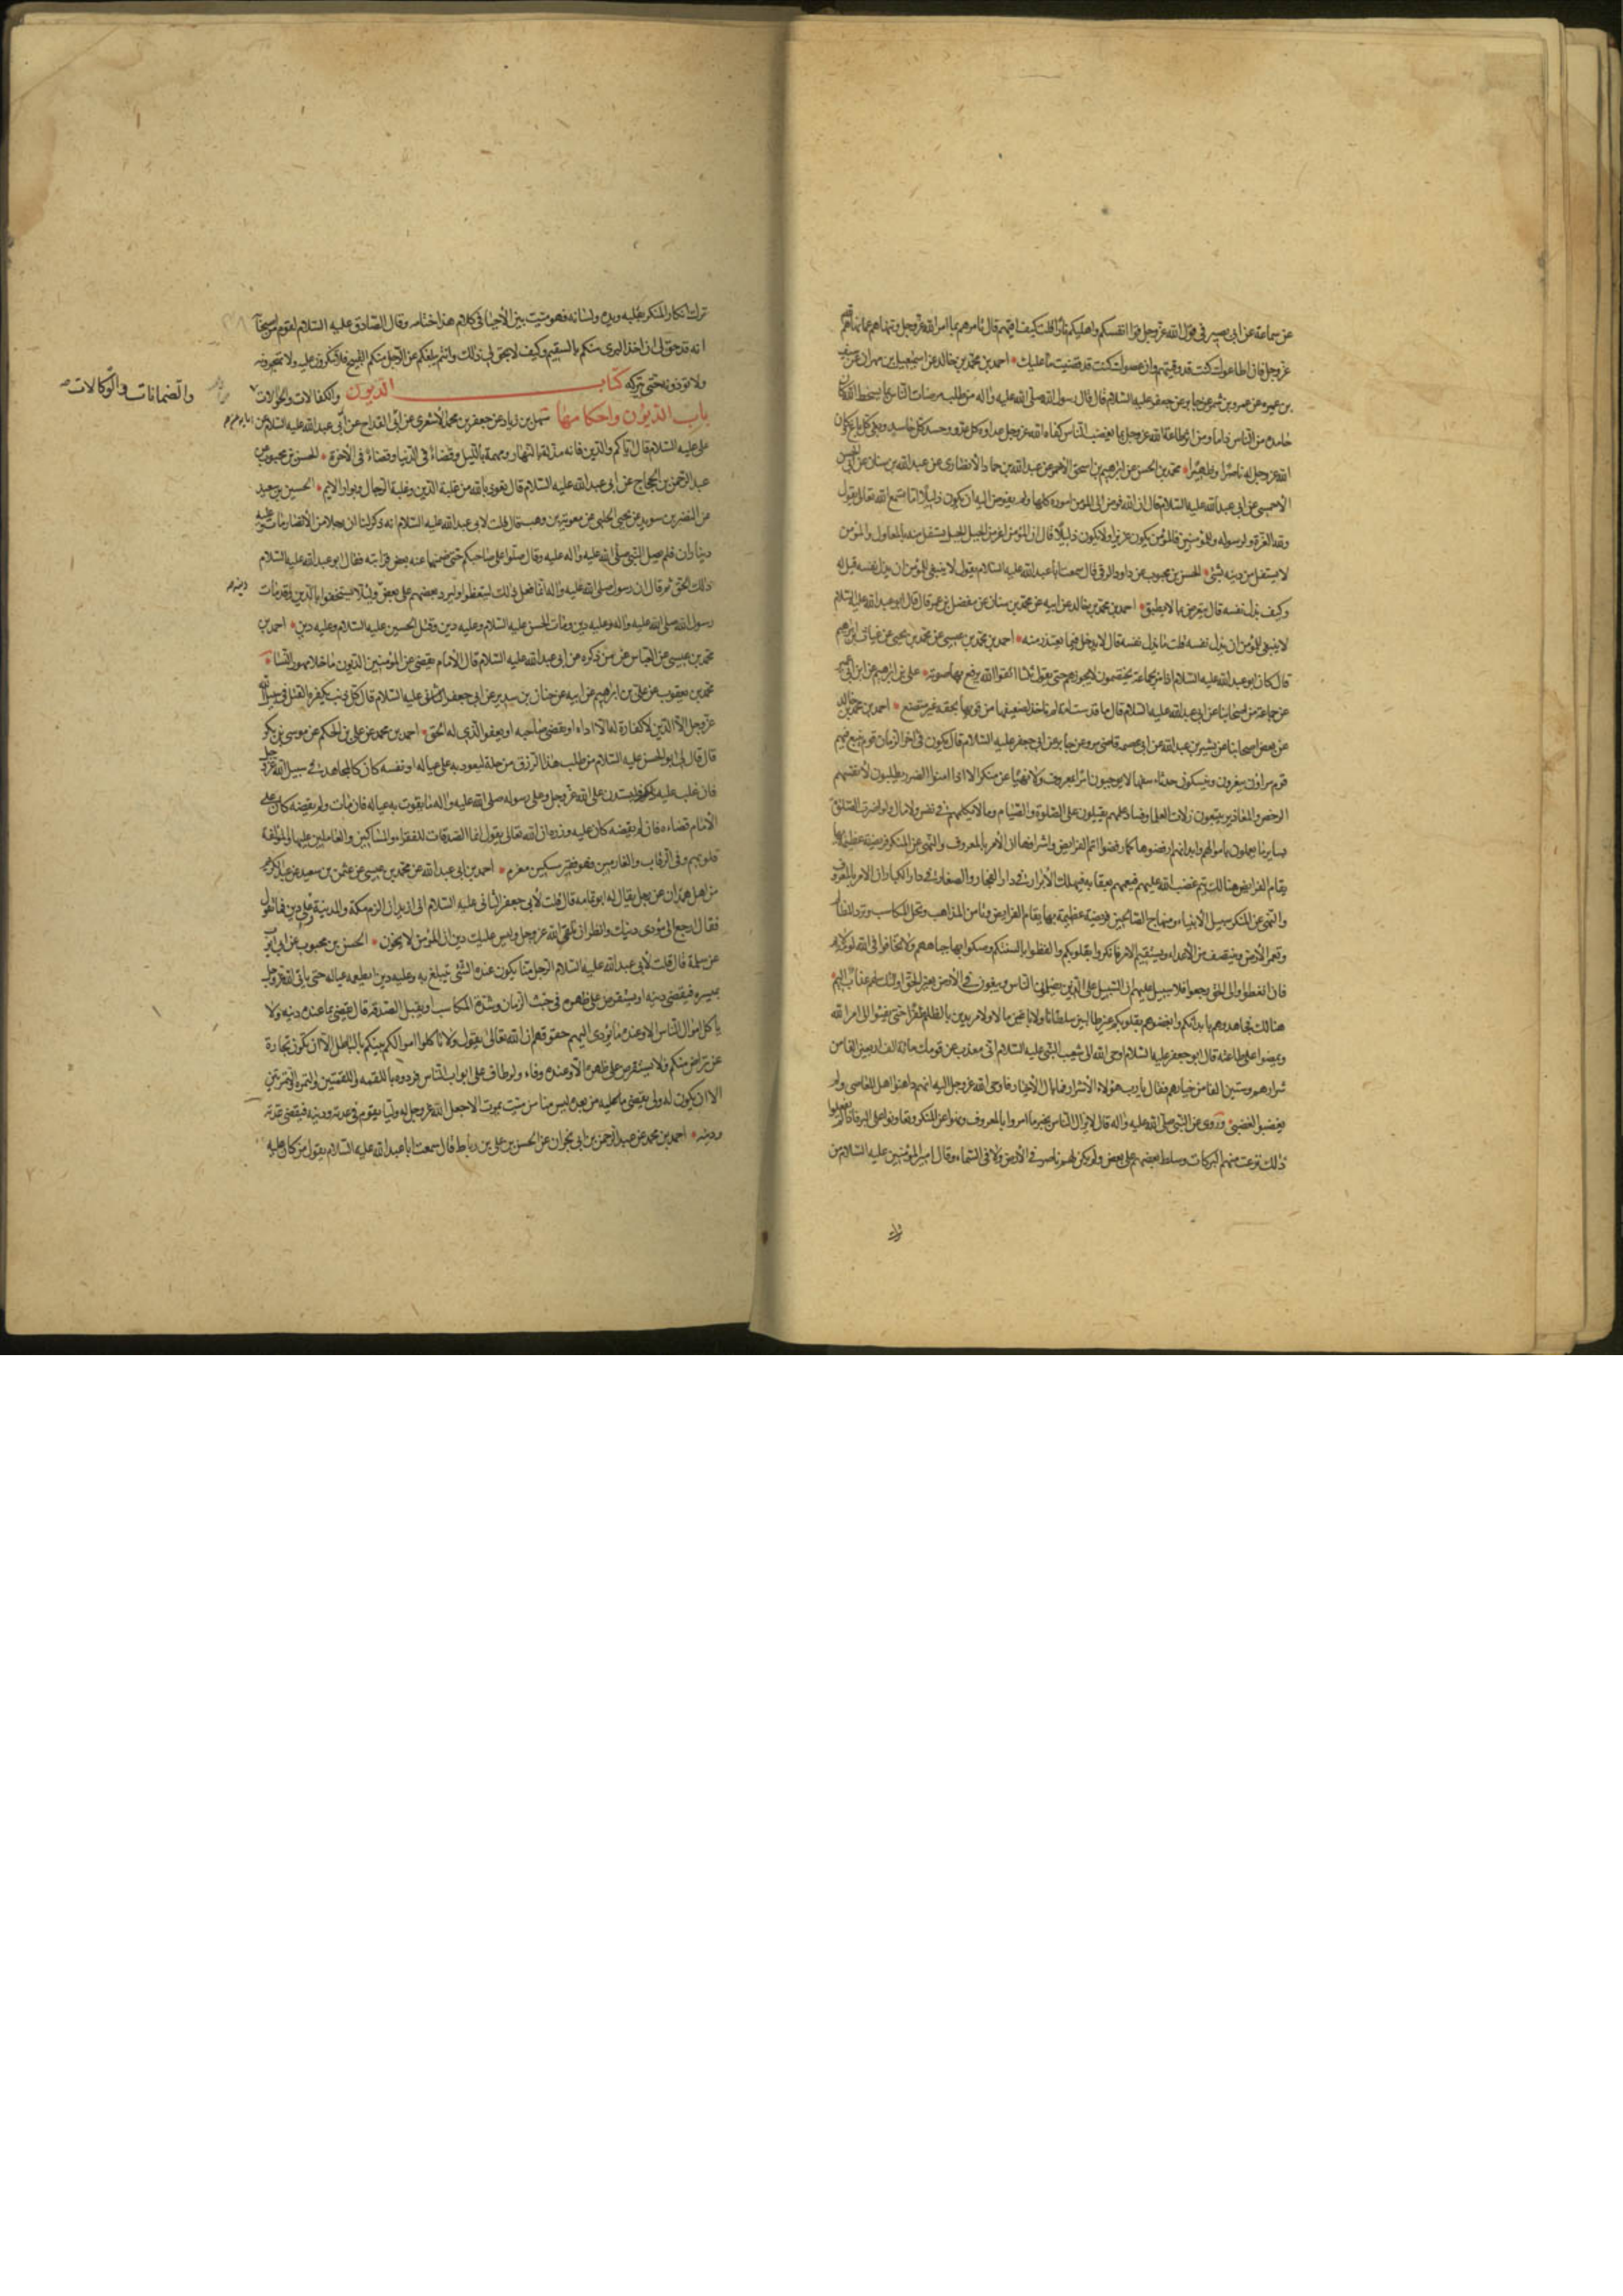 عن سماعة عن ابى بصير فى قول الله عز وجل قوا انفسكم واهليكم نارا قلت كيف اقيهم قال تامرهم بما امر الله عز وجل وتنهاهم عما نهاهم الله
عز وجل فان اطاعوك كنت قد وقيتهم وان عصوك كنت قد قضيت ما عليك * احمد بن محمد بن خالد عن اسمعيل بن مهران عن سيف
بن عميره عن عمرو بن شمر عن جابر عن ابى جعفر عليه السلام قال قال رسول الله صلى الله عليه واله من طلب مرضات الناس بما يسخط الله كان
حامده من الناس ذاما ومن اثر طاعة الله عز وجل بما يغضب الناس كفاه الله عز وجل عداوة كل عدو وحسد كل حاسد وبغى كل باغ وكان
الله عز وجل له ناصرا وظهيرا * محمد بن الحسن عن ابرهيم بن اسحق الاحمر عن عبدالله بن حماد الانصارى عن عبدالله بن سنان عن ابى الحسن
الاحمسى عن ابى عبدالله عليه السلام قال ان الله فوض الى المؤمن اموره كلها ولم يفوض اليه ان يكون ذليلا اما تسمع الله تعالى يقول
ولله العزة ولرسوله وللمؤمنين فالمؤمن يكون عزيزا ولا يكون ذليلا قال ان المؤمن اعز من الجبل الجبل يستقل منه بالمعاول والمؤمن
لا يستقل من دينه بشئ * الحسن بن محبوب عن داود الرقى قال سمعت ابا عبدالله عليه السلام يقول لا ينبغى للمؤمن ان يذل نفسه قيل له
وكيف يذل نفسه قال يتعرض بما لا يطيق * احمد بن محمد بن خالد عن ابيه عن محمد بن سنان عن مفضل بن عمر قال قال ابو عبدالله عليه السلام
لا ينبغى للمؤمن ان يذل نفسه قلت ما يذل نفسه قال لا يدخل فيما يعتذر منه * احمد بن محمد بن عيسى عن محمد بن يحيى عن غياث بن ابرهيم
قال كان ابو عبدالله عليه السلام اذا مر بجماعة يختصمون لا يجوزهم حتى يقول ثلثا اتقوا الله يرفع بها صوته * على بن ابرهيم عن ابن ابى عمير
عن جماعة من اصحابنا عن ابى عبدالله عليه السلام قال ما قدست امة لم تاخذ لضعيفها من قويها بحقه غير متضع * احمد بن محمد بن خالد
عن بعض اصحابنا عن بشير بن عبدالله عن ابى عصمه قاضى مرو عن جابر عن ابى جعفر عليه السلام قال يكون فى اخر الزمان قوم يتبع فيهم
قوم مراؤن يتقرؤن ويتنسكون حدثاء سفهاء لا يوجبون امرا بمعروف ولا نهيا عن منكر الا اذا امنوا الضرر يطلبون لانفسهم
الرخص والمعاذير يتبعون زلات العلماء وفساد علمهم يقبلون على الصلوة والصيام وما لا يكلمهم فى نفس ولا مال ولو اضرت الصلوة
بسائر ما يعملون باموالهم وابدانهم لرفضوها كما رفضوا اتم الفرايض واشرافها ان الامر بالمعروف والنهى عن المنكر فريضة عظيمة بها
يقام الفرايض هنالك يتم غضب الله عليهم فيعمهم بعقابه فيهلك الابرار فى دار الفجار والصغار فى دار الكبار ان الامر بالمعروف
والنهى عن المنكر سبيل الانبياء ومنهاج الصالحين فريضة عظيمة بها يقام الفرايض وتامن المذاهب وتحل المكاسب وترد المظالم
وتعمر الارض وينتصف من الاعداء ويستقيم الامر فانكروا بقلوبكم والفظوا بالسنتكم وصكوا بها جباههم ولا تخافوا فى الله لومة لائم
فان اتعظوا والى الحق رجعوا فلا سبيل عليهم ان السبيل على الذين يظلمون الناس ويبغون فى الارض بغير الحق اولئك لهم عذاب اليم
هنالك فجاهدوهم بابدانكم وابغضوهم بقلوبكم غير طالبين سلطانا ولا باغين مالا ولا مريدين بالظلم ظفرا حتى يفيئوا الى امر الله
ويمضوا على طاعته قال ابو جعفر عليه السلام اوحى الله الى شعيب النبى عليه السلام انى معذب من قومك مائة الف اربعين الفا من
شرارهم وستين الفا من خيارهم فقال يا رب هؤلاء الاشرار فما بال الاخيار فاوحى الله عز وجل اليه انهم داهنوا اهل المعاصى ولم
يغضبوا لغضبى * وروى عن النبى صلى الله عليه واله قال لا يزال الناس بخير ما امروا بالمعروف ونهوا عن المنكر وتعاونوا على البر فاذا لم يفعلوا
ذلك نزعت منهم البركات وسلط بعضهم على بعض ولم يكن لهم ناصر فى الارض ولا فى السماء وقال امير المؤمنين عليه السلام من
ترك
ترك انكار المنكر بقلبه ويده ولسانه فهو ميت بين الاحياء فى كلام هذا ختامه وقال الصادق عليه السلام لقوم من اصحابه
انه قد حق لى ان اخذ البرى منكم بالسقيم وكيف لا يحق لى ذلك وانتم يبلغكم عن الرجل منكم القبيح فلا تنكرون عليه ولا تهجرونه
ولا تؤذونه حتى يتركه كتاب الديون والكفالات والحوالات
والضمانات والوكالات
باب الديون واحكامها سهل بن زياد عن جعفر بن محمد الاشعرى عن ابن القداح عن ابى عبدالله عليه السلام عن
على عليه السلام قال اياكم والدين فانه مذلة بالنهار ومهمة بالليل وقضاء فى الدنيا وقضاء فى الاخرة * الحسن بن محبوب عن
عبدالرحمن بن الحجاج عن ابى عبدالله عليه السلام قال نعوذ بالله من غلبة الدين وغلبة الرجال وبوار الايم * الحسين بن سعيد
عن النضر بن سويد عن يحيى الحلبى عن معوية بن وهب قال قلت لابى عبدالله عليه السلام انه ذكر لنا ان رجلا من الانصار مات وعليه
ديناران فلم يصل النبى صلى الله عليه واله عليه وقال صلوا على صاحبكم حتى ضمنها عنه بعض قرابته فقال ابو عبدالله عليه السلام
ذلك الحق ثم قال ان رسول الله صلى الله عليه واله انما فعل ذلك ليتعظوا وليرد بعضهم على بعض ولئلا يستخفوا بالدين وقد مات
رسول الله صلى الله عليه واله وعليه دين ومات الحسن عليه السلام وعليه دين وقتل الحسين عليه السلام وعليه دين * احمد بن
محمد بن عيسى عن العباس عمن ذكره عن ابى عبدالله عليه السلام قال الامام يقضى عن المؤمنين الديون ما خلا مهور النساء *
محمد بن يعقوب عن على بن ابرهيم عن ابيه عن حنان بن سدير عن ابيه عن ابى جعفر عليه السلام قال كل ذنب يكفره القتل فى سبيل الله
عز وجل الا الدين لا كفارة له الا اداه او يقضى صاحبه او يعفو الذى له الحق * احمد بن محمد عن على بن الحكم عن موسى بن بكر
قال قال لى ابو الحسن عليه السلام من طلب هذا الرزق من حله ليعود به على عياله او نفسه كان كالمجاهد فى سبيل الله عز وجل
فان غلب عليه فليستدن على الله عز وجل وعلى رسوله صلى الله عليه واله ما يقوت به عياله فان مات ولم يقضه كان على
الامام قضاءه فان لم يقضه كان عليه وزره ان الله تعالى يقول انما الصدقات للفقراء والمساكين والعاملين عليها والمؤلفة
قلوبهم وفى الرقاب والغارمين فهو فقير مسكين مغرم * احمد بن ابى عبدالله عن محمد بن عيسى عن عثمن بن سعيد عن عبدالكريم
من اهل همدان عن رجل يقال له ابو ثمامه قال قلت لابى جعفر الثانى عليه السلام انى اريد ان الزم مكة والمدينة وعلى دين فما تقول
فقال ارجع الى مؤدى دينك وانظر ان تلقى الله عز وجل وليس عليك دين ان المؤمن لا يخون * الحسن بن محبوب عن ابى ايوب
عن سلمة قال قلت لابى عبدالله عليه السلام الرجل منا يكون عنده الشئ يتبلغ به وعليه دين ايطعمه عياله حتى ياتى الله عز وجل
بميسره فيقضى دينه او يستقرض على ظهره فى خبث الزمان وشدة المكاسب او يقبل الصدقة قال يقضى بما عنده دينه ولا
ياكل اموال الناس الا وعنده ما يؤدى اليهم حقوقهم ان الله تعالى يقول ولا تاكلوا اموالكم بينكم بالباطل الا ان تكون تجارة
عن تراض منكم فلا يستقرض على ظهره الا وعنده وفاء ولو طاف على ابواب الناس فردوه باللقمه واللقمتين والتمرة والتمرتين
الا ان يكون له ولى يقضى ما عليه من بعده ليس منا من ميت يموت الا جعل الله عز وجل له وليا يقوم فى عدته ودينه فيقضى عدته
ودينه * احمد بن محمد عن عبدالرحمن بن ابى نجران عن الحسن بن على بن رباط قال سمعت ابا عبدالله عليه السلام يقول من كان عليه